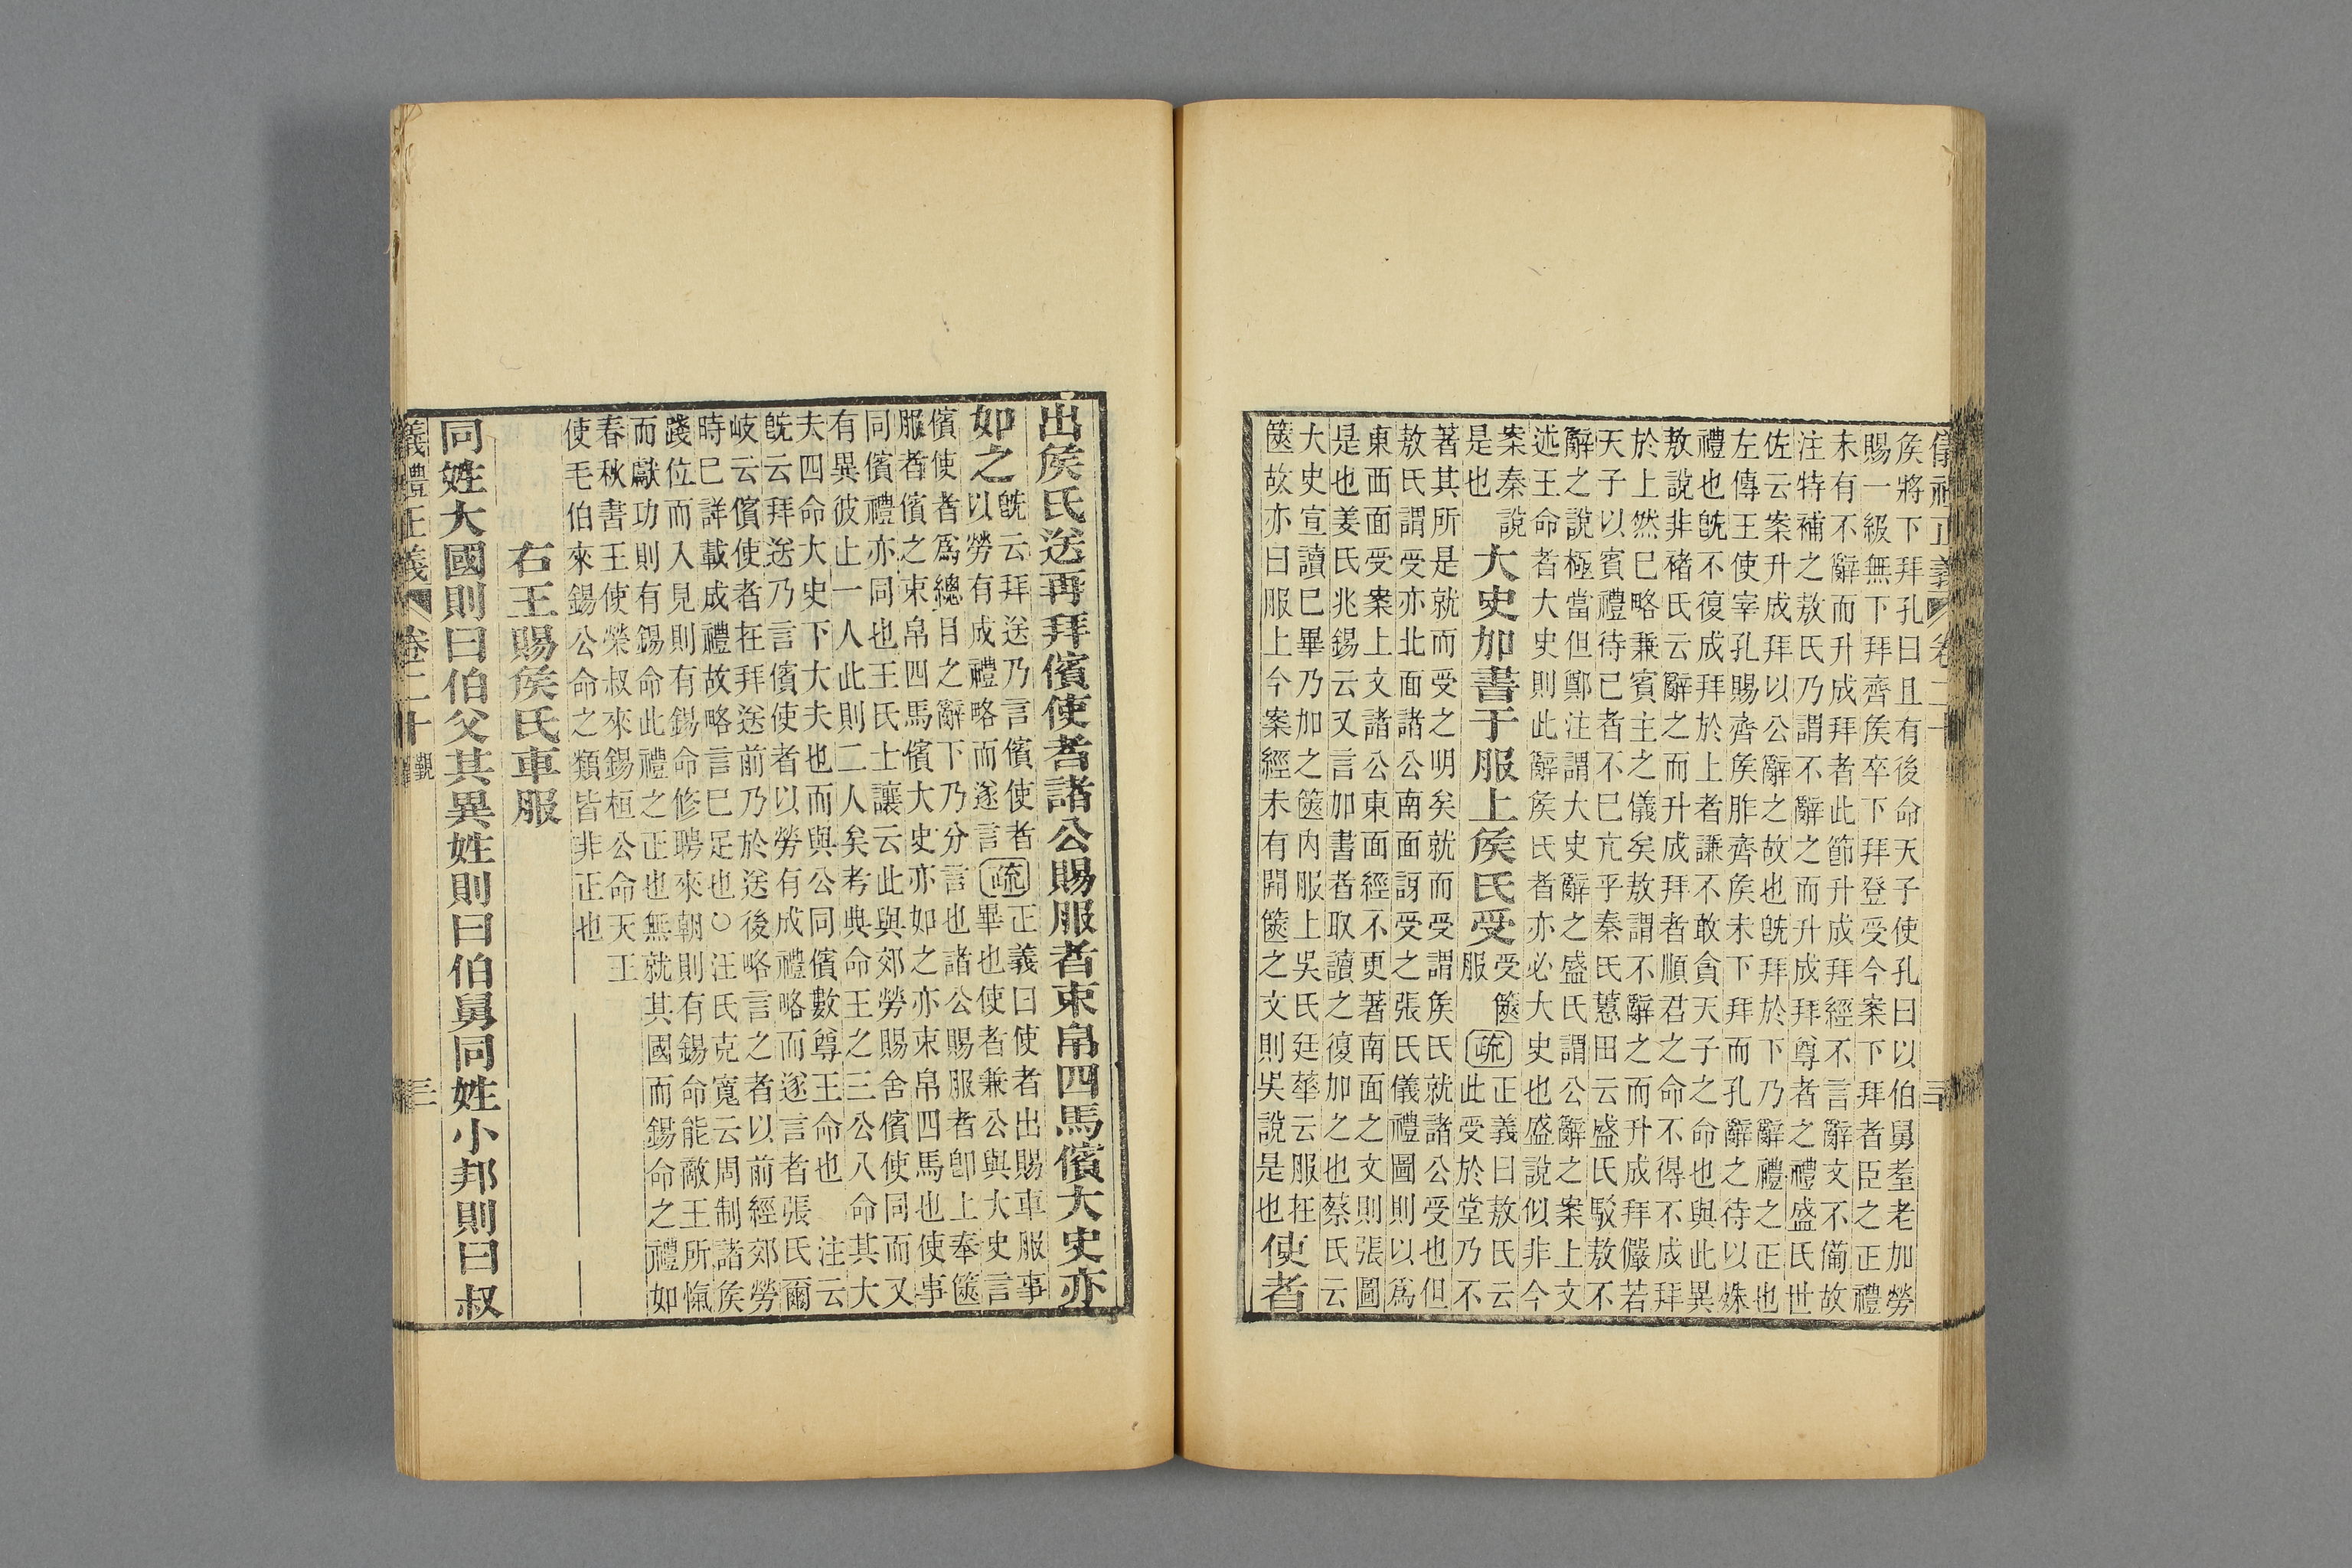 儀禮正義 卷二十 三
矦將下拜孔曰且有後命天子使孔曰以伯舅耋老加勞
賜一級無下拜齊矦卒下拜登受今案下拜者臣之正禮
未有不辭而升成拜者此節升成拜經不言辭文不僃故
注特補之敖氏乃謂不辭之而升成拜尊者之禮盛氏世
佐云案升成拜以公辭之故也旣拜於下乃辭禮之正也
左傳王使宰孔賜齊矦胙齊矦未下拜而孔辭之待以殊
禮也旣不復成拜於上者謙不敢貪天子之命也與此異
敖說非褚氏云辭之而升成拜者順君之命不得不成拜
於上然巳略兼賓主之儀矣敖謂不辭之而升成拜儼若
天子以賓禮待已者不巳亢乎秦氏蕙田云盛氏駁敖不
辭之說極當但鄭注謂大史辭之盛氏謂公辭之案上文
述王命者大史則此辭矦氏者亦必大史也盛說似非今
案秦說
是也
大史加書于服上矦氏受
受篋
服
疏
正義曰敖氏云
此受於堂乃不
著其所是就而受之明矣就而受謂矦氏就諸公受也但
敖氏謂受亦北面諸公南面訝受之張氏儀禮圖則以爲
東西面受案上文諸公東面經不更著南面之文則張圖
是也姜氏兆錫云又言加書者取讀之復加之也蔡氏云
大史宣讀巳畢乃加之篋內服上吳氏廷華云服在
篋故亦曰服上今案經未有開篋之文則吳說是也
使者
出矦氏送再拜儐使者諸公賜服者束帛四馬儐大史亦
如之
旣云拜送乃言儐使者
以勞有成禮略而遂言
疏
正義曰使者出賜車服事
畢也使者兼公與大史言
儐使者爲總目之辭下乃分言也諸公賜服者卽上奉篋
服者儐之束帛四馬儐大史亦如之亦束帛四馬也使事
同儐禮亦同也王氏士讓云此與郊勞賜舍儐使同而又
有異彼止一人此則二人矣考典命王之三公八命其大
夫四命大史下大夫也而與公同儐數尊王命也 注云
旣云拜送乃言儐使者以勞有成禮略而遂言者張氏爾
岐云儐使者在拜送前乃於送後略言之者以前經郊勞
時巳詳載成禮故略言巳足也○汪氏克寬云周制諸矦
踐位而入見則有錫命修聘來朝則有錫命能敵王所愾
而獻功則有錫命此禮之正也無就其國而錫命之禮如
春秋書王使榮叔來錫桓公命天王
使毛伯來錫公命之類皆非正也
右王賜矦氏車服
同姓大國則曰伯父其異姓則曰伯舅同姓小邦則曰叔
儀禮正義 卷二十 覲 三